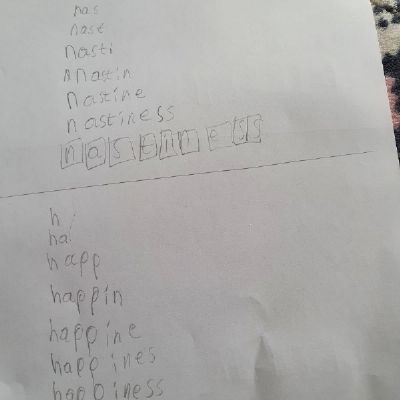 nas
nast
nasti
nnastin
nastine
nastiness
nastiness
h
ha
happ
happin
happine
happines
happiness